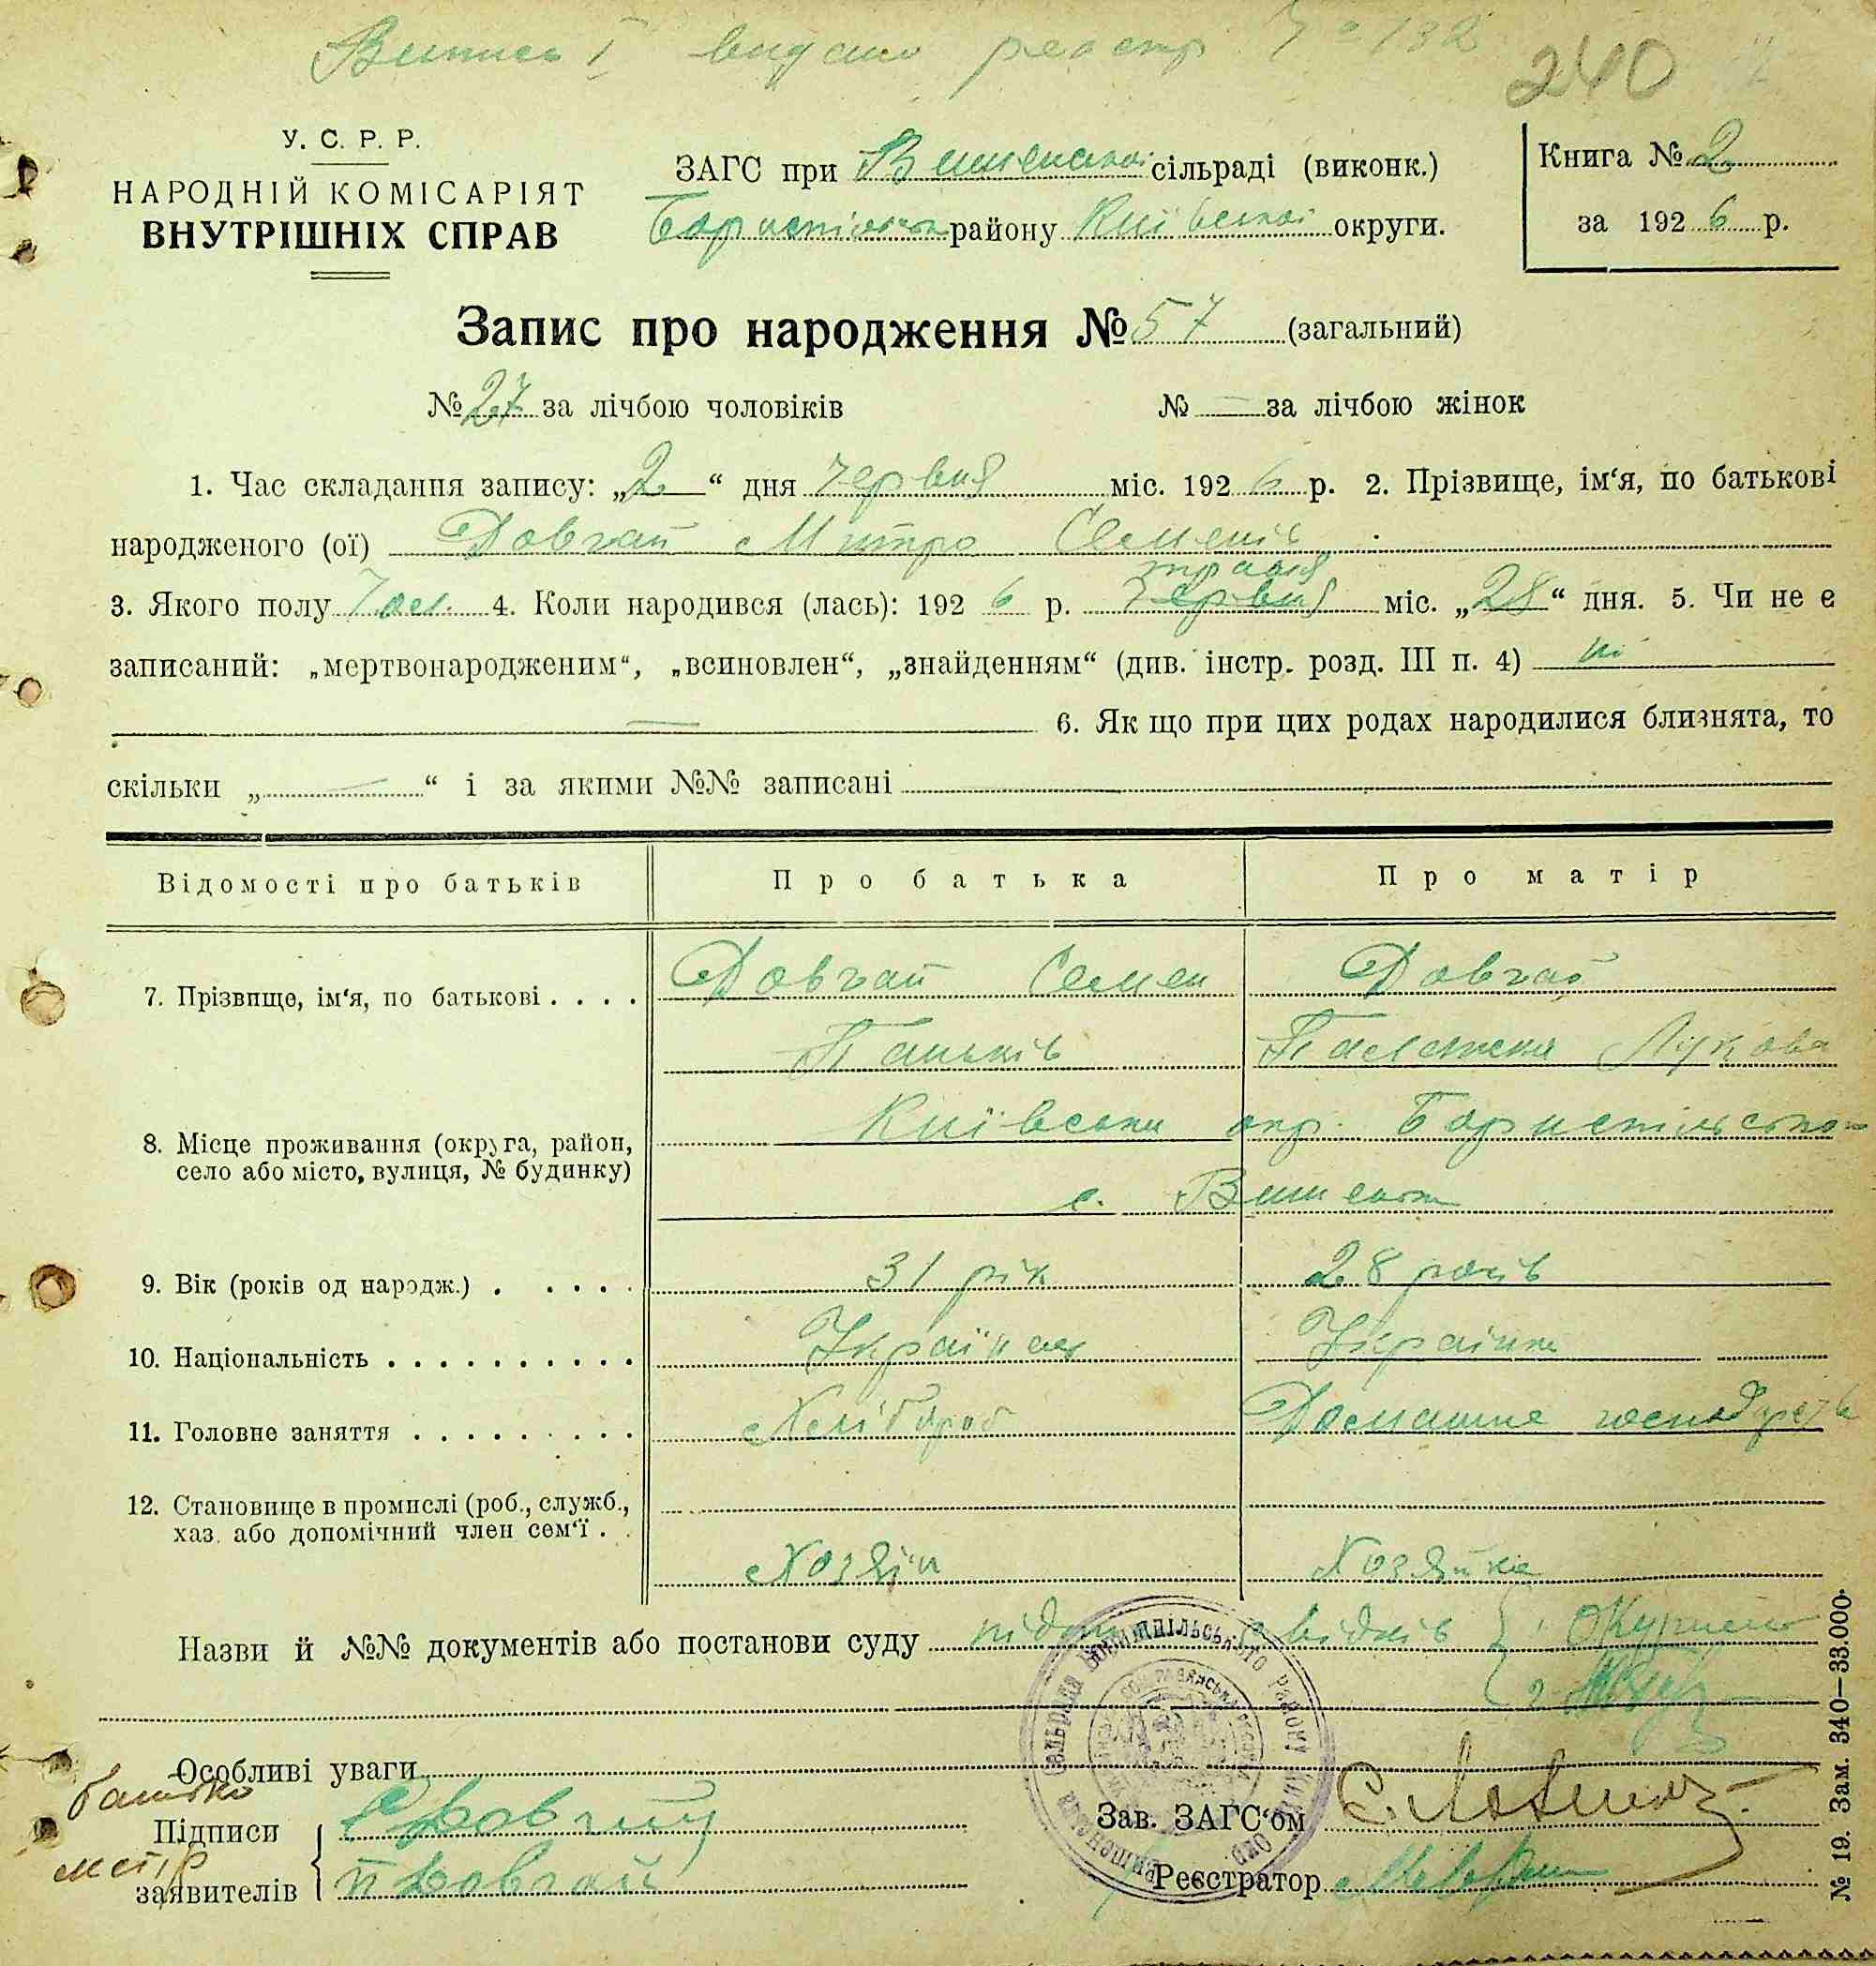 Випись видано реєстр. № 132
240
У. С. Р. Р.
НАРОДНІЙ КОМІСАРІЯТ
ВНУТРІШНІХ СПРАВ
ЗАГС при Вишенській сільраді (виконк.)
Бориспільськ району Київської округи.
Книга № 2
за 1926 р.
Запис про народження № 57 (загальний)
№ 27 за лічбою чоловіків № — за лічбою жінок
1. Час складання запису: „2“ дня червня міс. 1926 р. 2. Прізвище, ім‘я, по батькові
народженого (ої) Довгай Митро Семенів
травня
3. Якого полу чол. 4. Коли народився (лась): 1926 р. червня міс. „28“ дня. 5. Чи не є
записаний: „мертвонародженим“, „всиновлен“, „знайденням“ (див. інстр. розд. III п. 4) ні
— 6. Як що при цих родах народилися близнята, то
скільки „—“ і за якими №№ записані
Відомості про батьків Про батька Про матір
7. Прізвище, ім‘я, по батькові . . . . Довгай Семен Довгай
Паньків Палажка Лукова
8. Місце проживання (округа, район, село або місто, вулиця, № будинку) Київська окр. Бориспільсько-
с. Вишеньки
9. Вік (років од народж.) . . . . . 31 рік 28 років
10. Національність . . . . . . . . . . . Українец Українка
11. Головне заняття . . . . . . . . . . Хлібороб Домашнє господарств
12. Становище в промислі (роб., служб.,
хаз. або допомічний член сем‘ї . .
Хозяїн Хозяйка
Назви й №№ документів або постанови суду підпис свідків
Особливі уваги
батько
Підписи СДовгий
матір
заявителів ПДовгай
Зав. ЗАГС‘ом
Реєстратор
№ 19. Зам. 340—33.000.